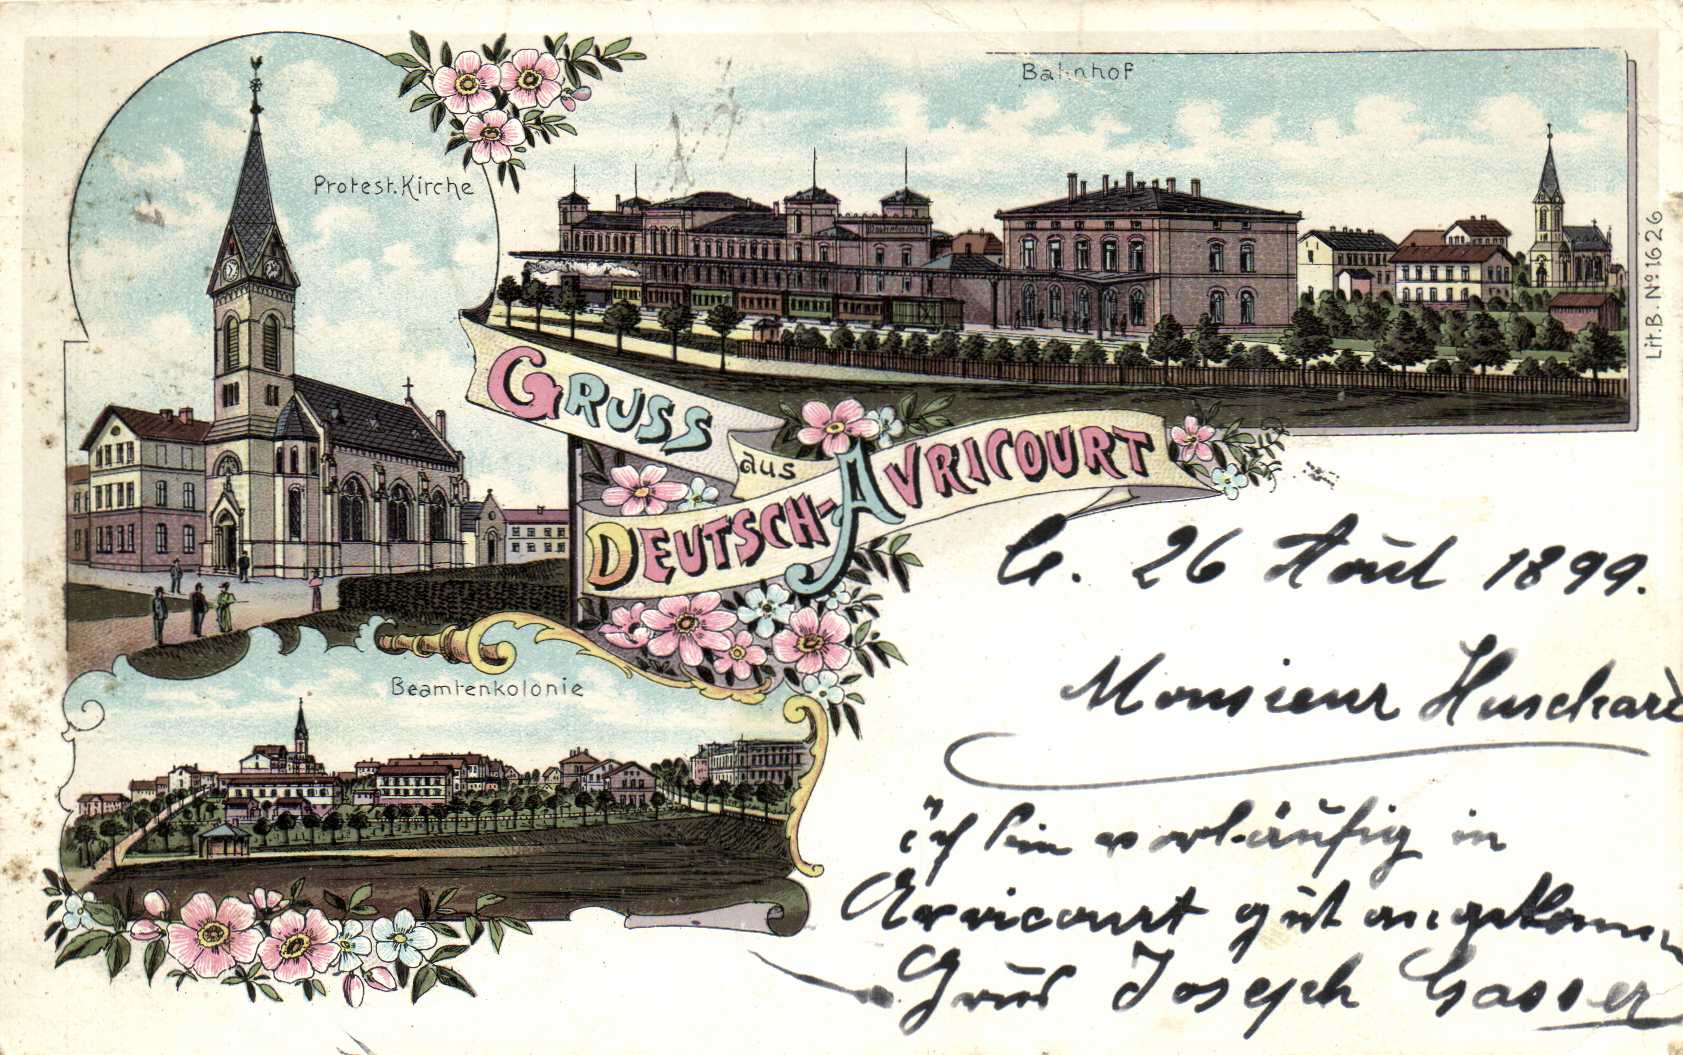 Bahnhof
Protest. Kirche
Lit. B. No 1626
GRUSS
aus
DEUTSCH-AVRICOURT
26 Août 1899.
Monsieur
Beamtenkolonie
ich bin vorläufig in
Avricourt gut angekommen
Grus Joseph Gasser